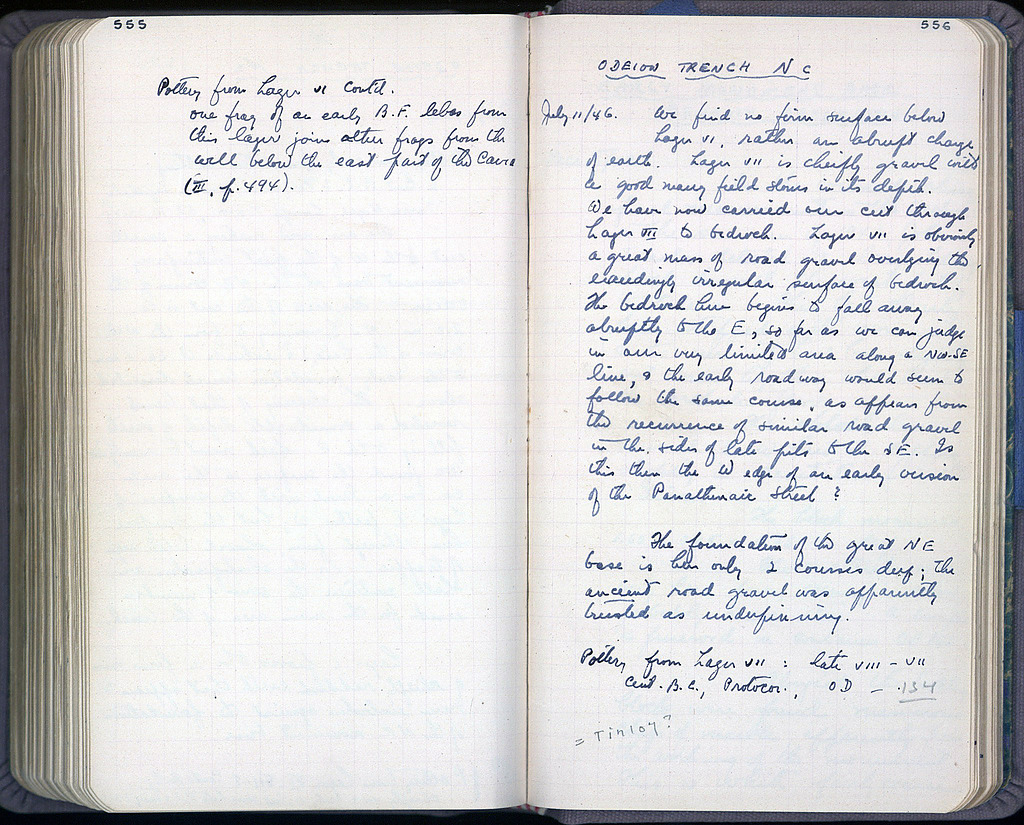 555
Pottery from Layer VI Contd.
one frag of an early B.F. lebes from
this layer joins other frags from the
well below the east part of the Cavea
(III, p. 494).
556
ODEION TRENCH N C
July 11/46. We find no firm surface below
Layer VI, rather an abrupt change
of earth. Layer VII is chiefly gravel with
a good many field stones in its depth.
We have now carried our cut through
Layer VII to bedrock. Layer VII is obviously
a great mass of road gravel overlying the
exceedingly irregular surface of bedrock.
The bedrock here begins to fall away
abruptly to the E, so far as we can judge
in our very limited area along a NW-SE
line, & the early roadway would seem to
follow the same course, as appears from
the recurrence of similar road gravel
in the sides of late pits to the SE. Is
this then the W edge of an early version
of the Panathenaic Street?
The foundation of the great NE
base is here only 2 courses deep; the
ancient road gravel was apparently
trusted as underpinning.
Pottery from Layer VII : late VIII - VII
Cent. B.C., Protocor., OD - 134
= Tin 107?